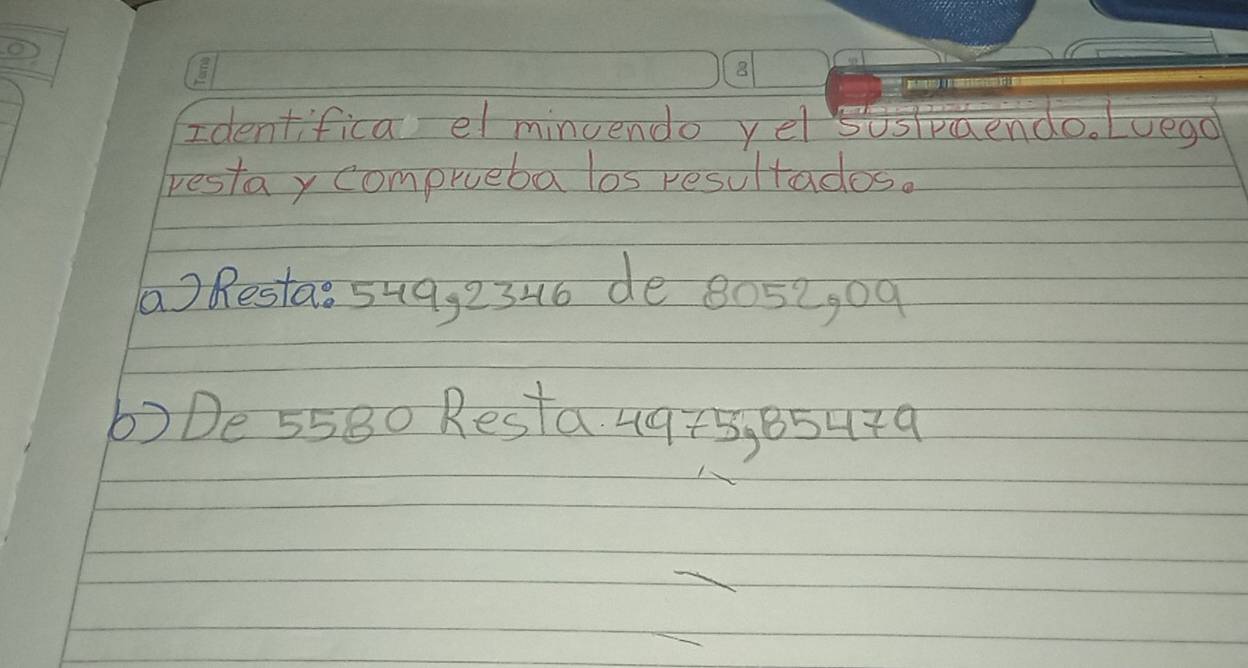 Tema
8
Identifica el minuendo y el sustraendo. Luego
resta y comprueba los resultados.
a) Resta: 549,2346 de 8052,09
b) De 5580 Resta. 4975,85479